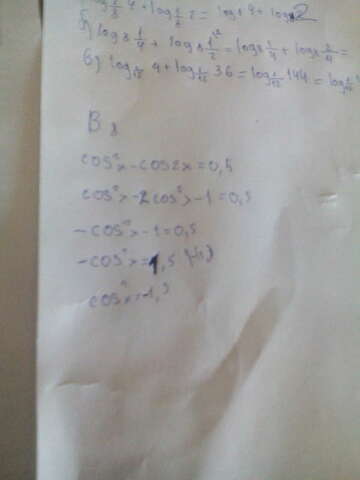 б) log₈ 1/4 + log₈ 1/2 = log₈ 1/4 + log₈ 2/4 =
в) log 1/12 4 + log 1/12 36 = log 1/12 144 = log 1/12
В 8
cos²x - cos2x = 0,5
cos²x - 2cos²x - 1 = 0,5
-cos²x - 1 = 0,5
-cos²x = 1,5
cos²x = -1,5